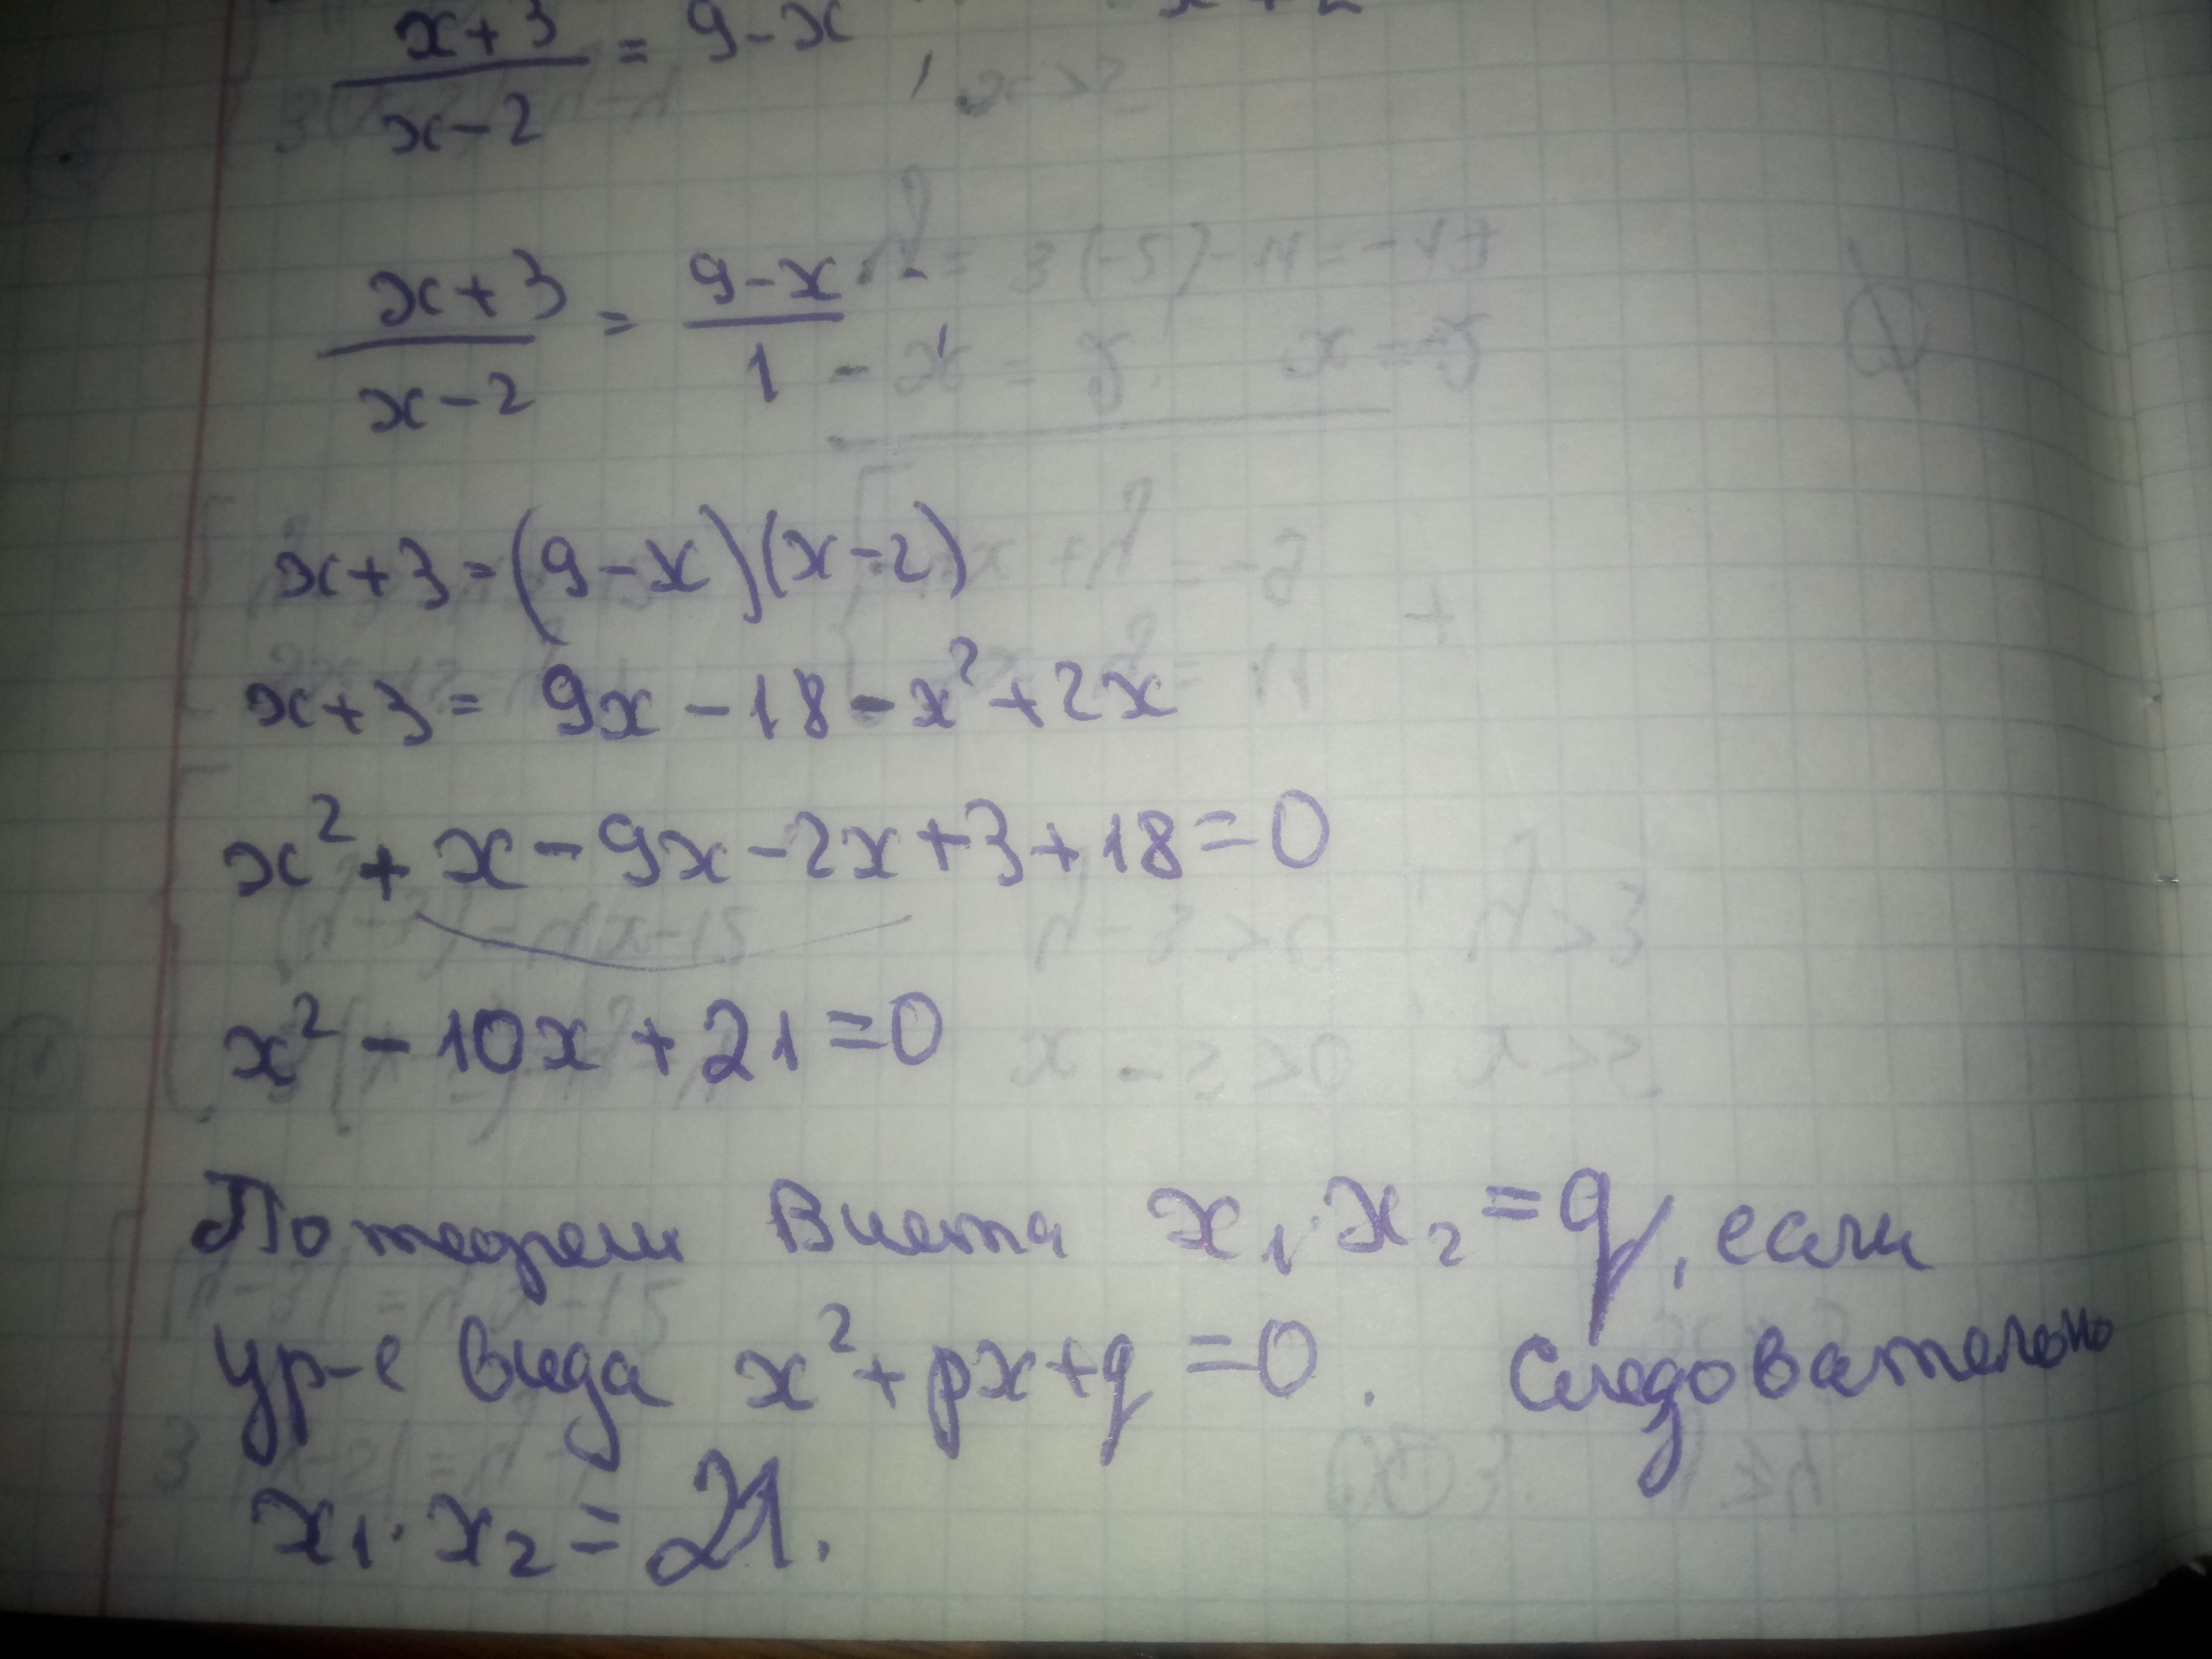 x+3/x-2 = 9-x
x+3/x-2 = 9-x/1
x+3=(9-x)(x-2)
x+3= 9x-18-x²+2x
x²+x-9x-2x+3+18=0
x²-10x+21=0
По теореми Виета x₁·x₂=q, если
ур-е вида x²+px+q=0. Следовательно
x₁·x₂=21.